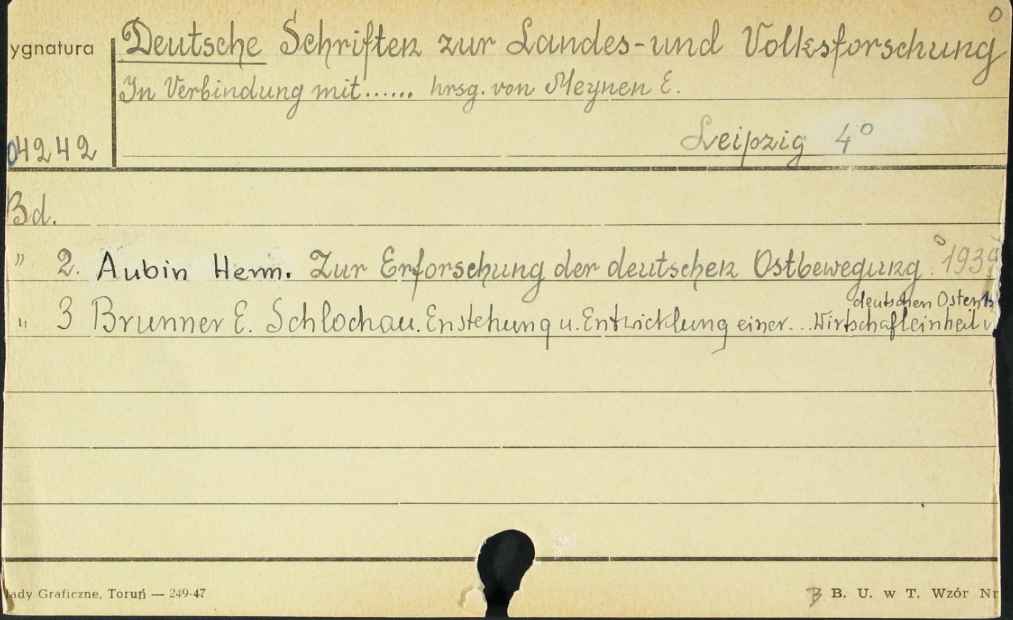 o
ygnatura Deutsche Schriften zur Landes-und Volksforschung
In Verbindung mit...... hrsg. von Meynen E.
04242 Leipzig 4°
Bd.
" 2. Aubin Herm. Zur Erforschung der deutschen Ostbewegung. 1939
deutschen Osten
" 3 Brunner E. Schlochau. Enstehung u. Entwicklung einer... Wirtschafleinheit
ady Graficzne, Toruń — 249-47 B. U. w T. Wzór Nr